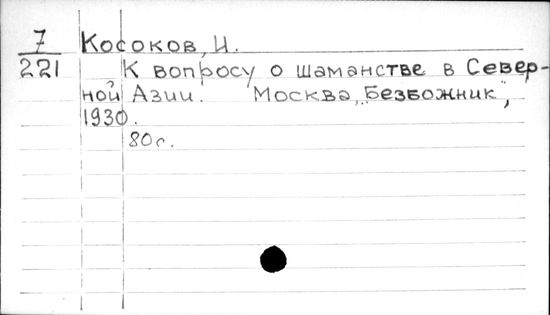 7 Косоков, И.
221 К вопросу о шаманстве в Север-
ной Азии. Москва, „Безбожник",
1930.
80с.